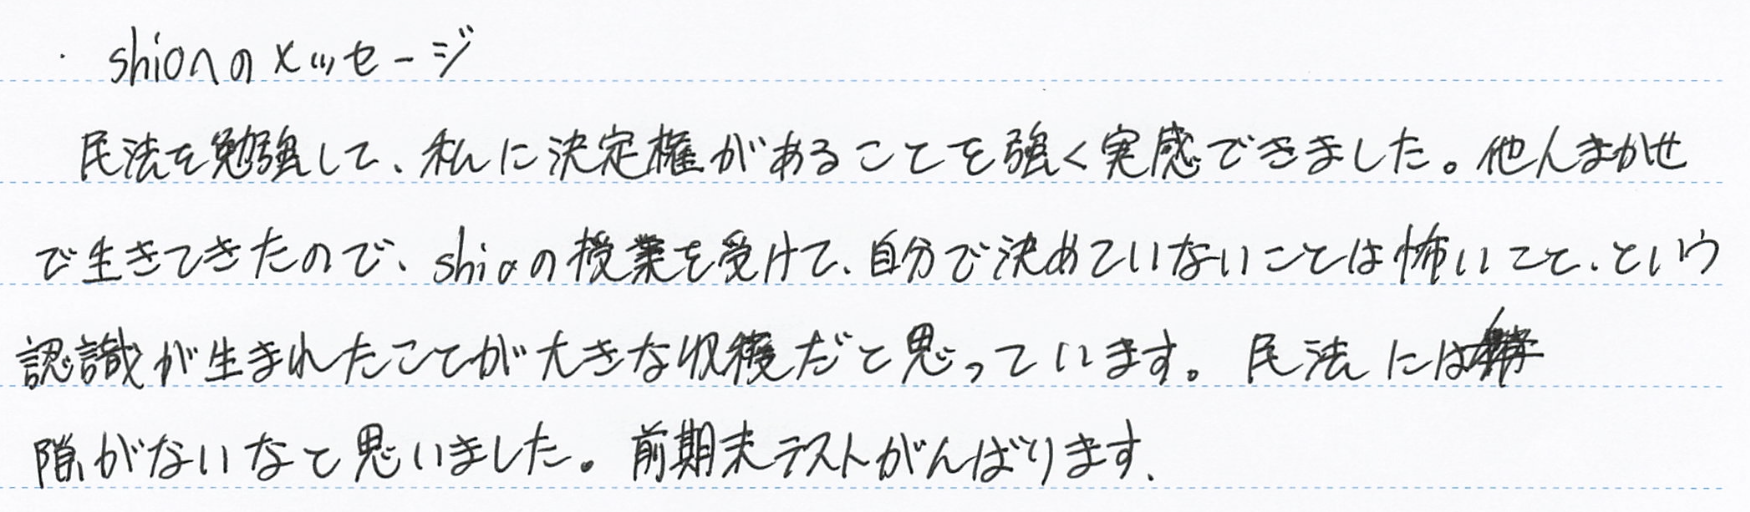 ・ shioへのメッセージ
民法を勉強して、私に決定権があることを強く実感できました。他人まかせ
で生きてきたので、shioの授業を受けて、自分で決めていないことは怖いこと、という
認識が生まれたことが大きな収穫だと思っています。民法には
隙がないなと思いました。前期末テストがんばります、